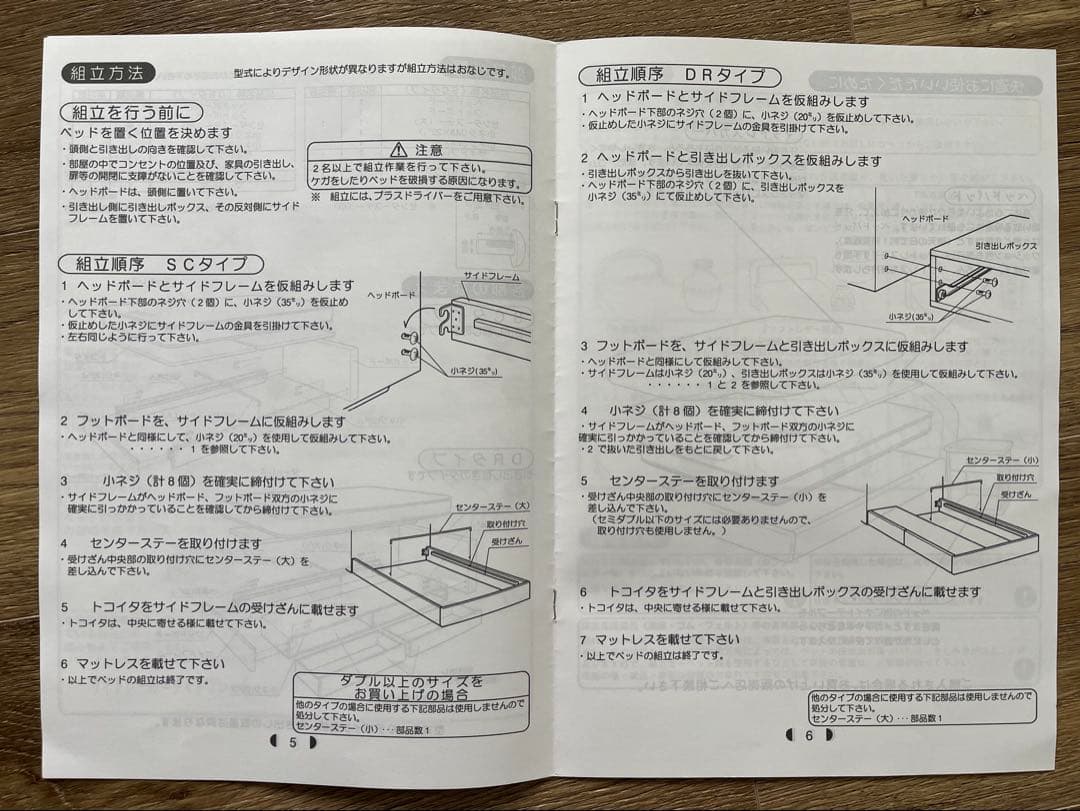 組立方法
型式によりデザイン形状が異なりますが組立方法はおなじです。
組立を行う前に
ベッドを置く位置を決めます
・頭側と引き出しの向きを確認して下さい。
・部屋の中でコンセントの位置及び、家具の引き出し、
扉等の開閉に支障がないことを確認して下さい。
・ヘッドボードは、頭側に置いて下さい。
・引き出し側に引き出しボックス、その反対側にサイド
フレームを置いて下さい。
⚠ 注意
2名以上で組立作業を行って下さい。
ケガをしたりベッドを破損する原因になります。
※ 組立には、プラスドライバーをご用意下さい。
組立順序 SCタイプ
1 ヘッドボードとサイドフレームを仮組みします
・ヘッドボード下部のネジ穴(2個)に、小ネジ(35㍉)を仮止め
して下さい。
・仮止めした小ネジにサイドフレームの金具を引掛けて下さい。
・左右同じように行って下さい。
サイドフレーム
ヘッドボード
小ネジ(35㍉)
2 フットボードを、サイドフレームに仮組みします
・ヘッドボードと同様にして、小ネジ(20㍉)を使用して仮組みして下さい。
・・・・・・1を参照して下さい。
3 小ネジ(計8個)を確実に締付けて下さい
・サイドフレームがヘッドボード、フットボード双方の小ネジに
確実に引っかかっていることを確認してから締付けて下さい。
4 センターステーを取り付けます
・受けざん中央部の取り付け穴にセンターステー(大)を
差し込んで下さい。
センターステー(大)
取り付け穴
受けざん
5 トコイタをサイドフレームの受けざんに載せます
・トコイタは、中央に寄せる様に載せて下さい。
6 マットレスを載せて下さい
・以上でベッドの組立は終了です。
ダブル以上のサイズを
お買い上げの場合
他のタイプの場合に使用する下記部品は使用しませんので
処分して下さい。
センターステー(小)・・・部品数1
5
組立順序 DRタイプ
1 ヘッドボードとサイドフレームを仮組みします
・ヘッドボード下部のネジ穴(2個)に、小ネジ(20㍉)を仮止めして下さい。
・仮止めした小ネジにサイドフレームの金具を引掛けて下さい。
2 ヘッドボードと引き出しボックスを仮組みします
・引き出しボックスから引き出しを抜いて下さい。
・ヘッドボード下部のネジ穴(2個)に、引き出しボックスを
小ネジ(35㍉)にて仮止めして下さい。
ヘッドボード
引き出しボックス
小ネジ(35㍉)
3 フットボードを、サイドフレームと引き出しボックスに仮組みします
・ヘッドボードと同様にして仮組みして下さい。
・サイドフレームは小ネジ(20㍉)、引き出しボックスは小ネジ(35㍉)を使用して仮組みして下さい。
・・・・・・1と2を参照して下さい。
4 小ネジ(計8個)を確実に締付けて下さい
・サイドフレームがヘッドボード、フットボード双方の小ネジに
確実に引っかかっていることを確認してから締付けて下さい。
・2で抜いた引き出しをもとに戻して下さい。
5 センターステーを取り付けます
・受けざん中央部の取り付け穴にセンターステー(小)を
差し込んで下さい。
(セミダブル以下のサイズには必要ありませんので、
取り付け穴も使用しません。)
センターステー(小)
取り付け穴
受けざん
6 トコイタをサイドフレームと引き出しボックスの受けざんに載せます
・トコイタは、中央に寄せる様に載せて下さい。
7 マットレスを載せて下さい
・以上でベッドの組立は終了です。
他のタイプの場合に使用する下記部品は使用しませんので
処分して下さい。
センターステー(大)・・・部品数1
6